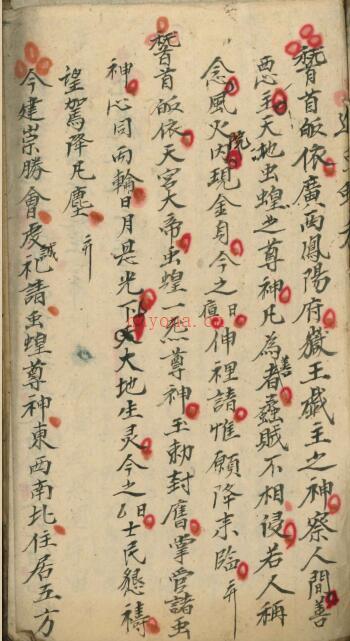 稽首皈依廣西鳳陽府獄王獄主之神察人間善
惡主天地虫蝗之尊神凡為善者蟊賊不相侵若人称
念風火院内現金身今之日 伸裡請惟願降来臨
稽首皈依天宫大帝虫蝗一炁尊神玉勅封舊掌管諸虫
神心同两輪日月恩光下大地生灵今之日士民懇祷
望駕降凡塵
今建崇勝會虔誠礼請虫蝗尊神東西南北住居五方